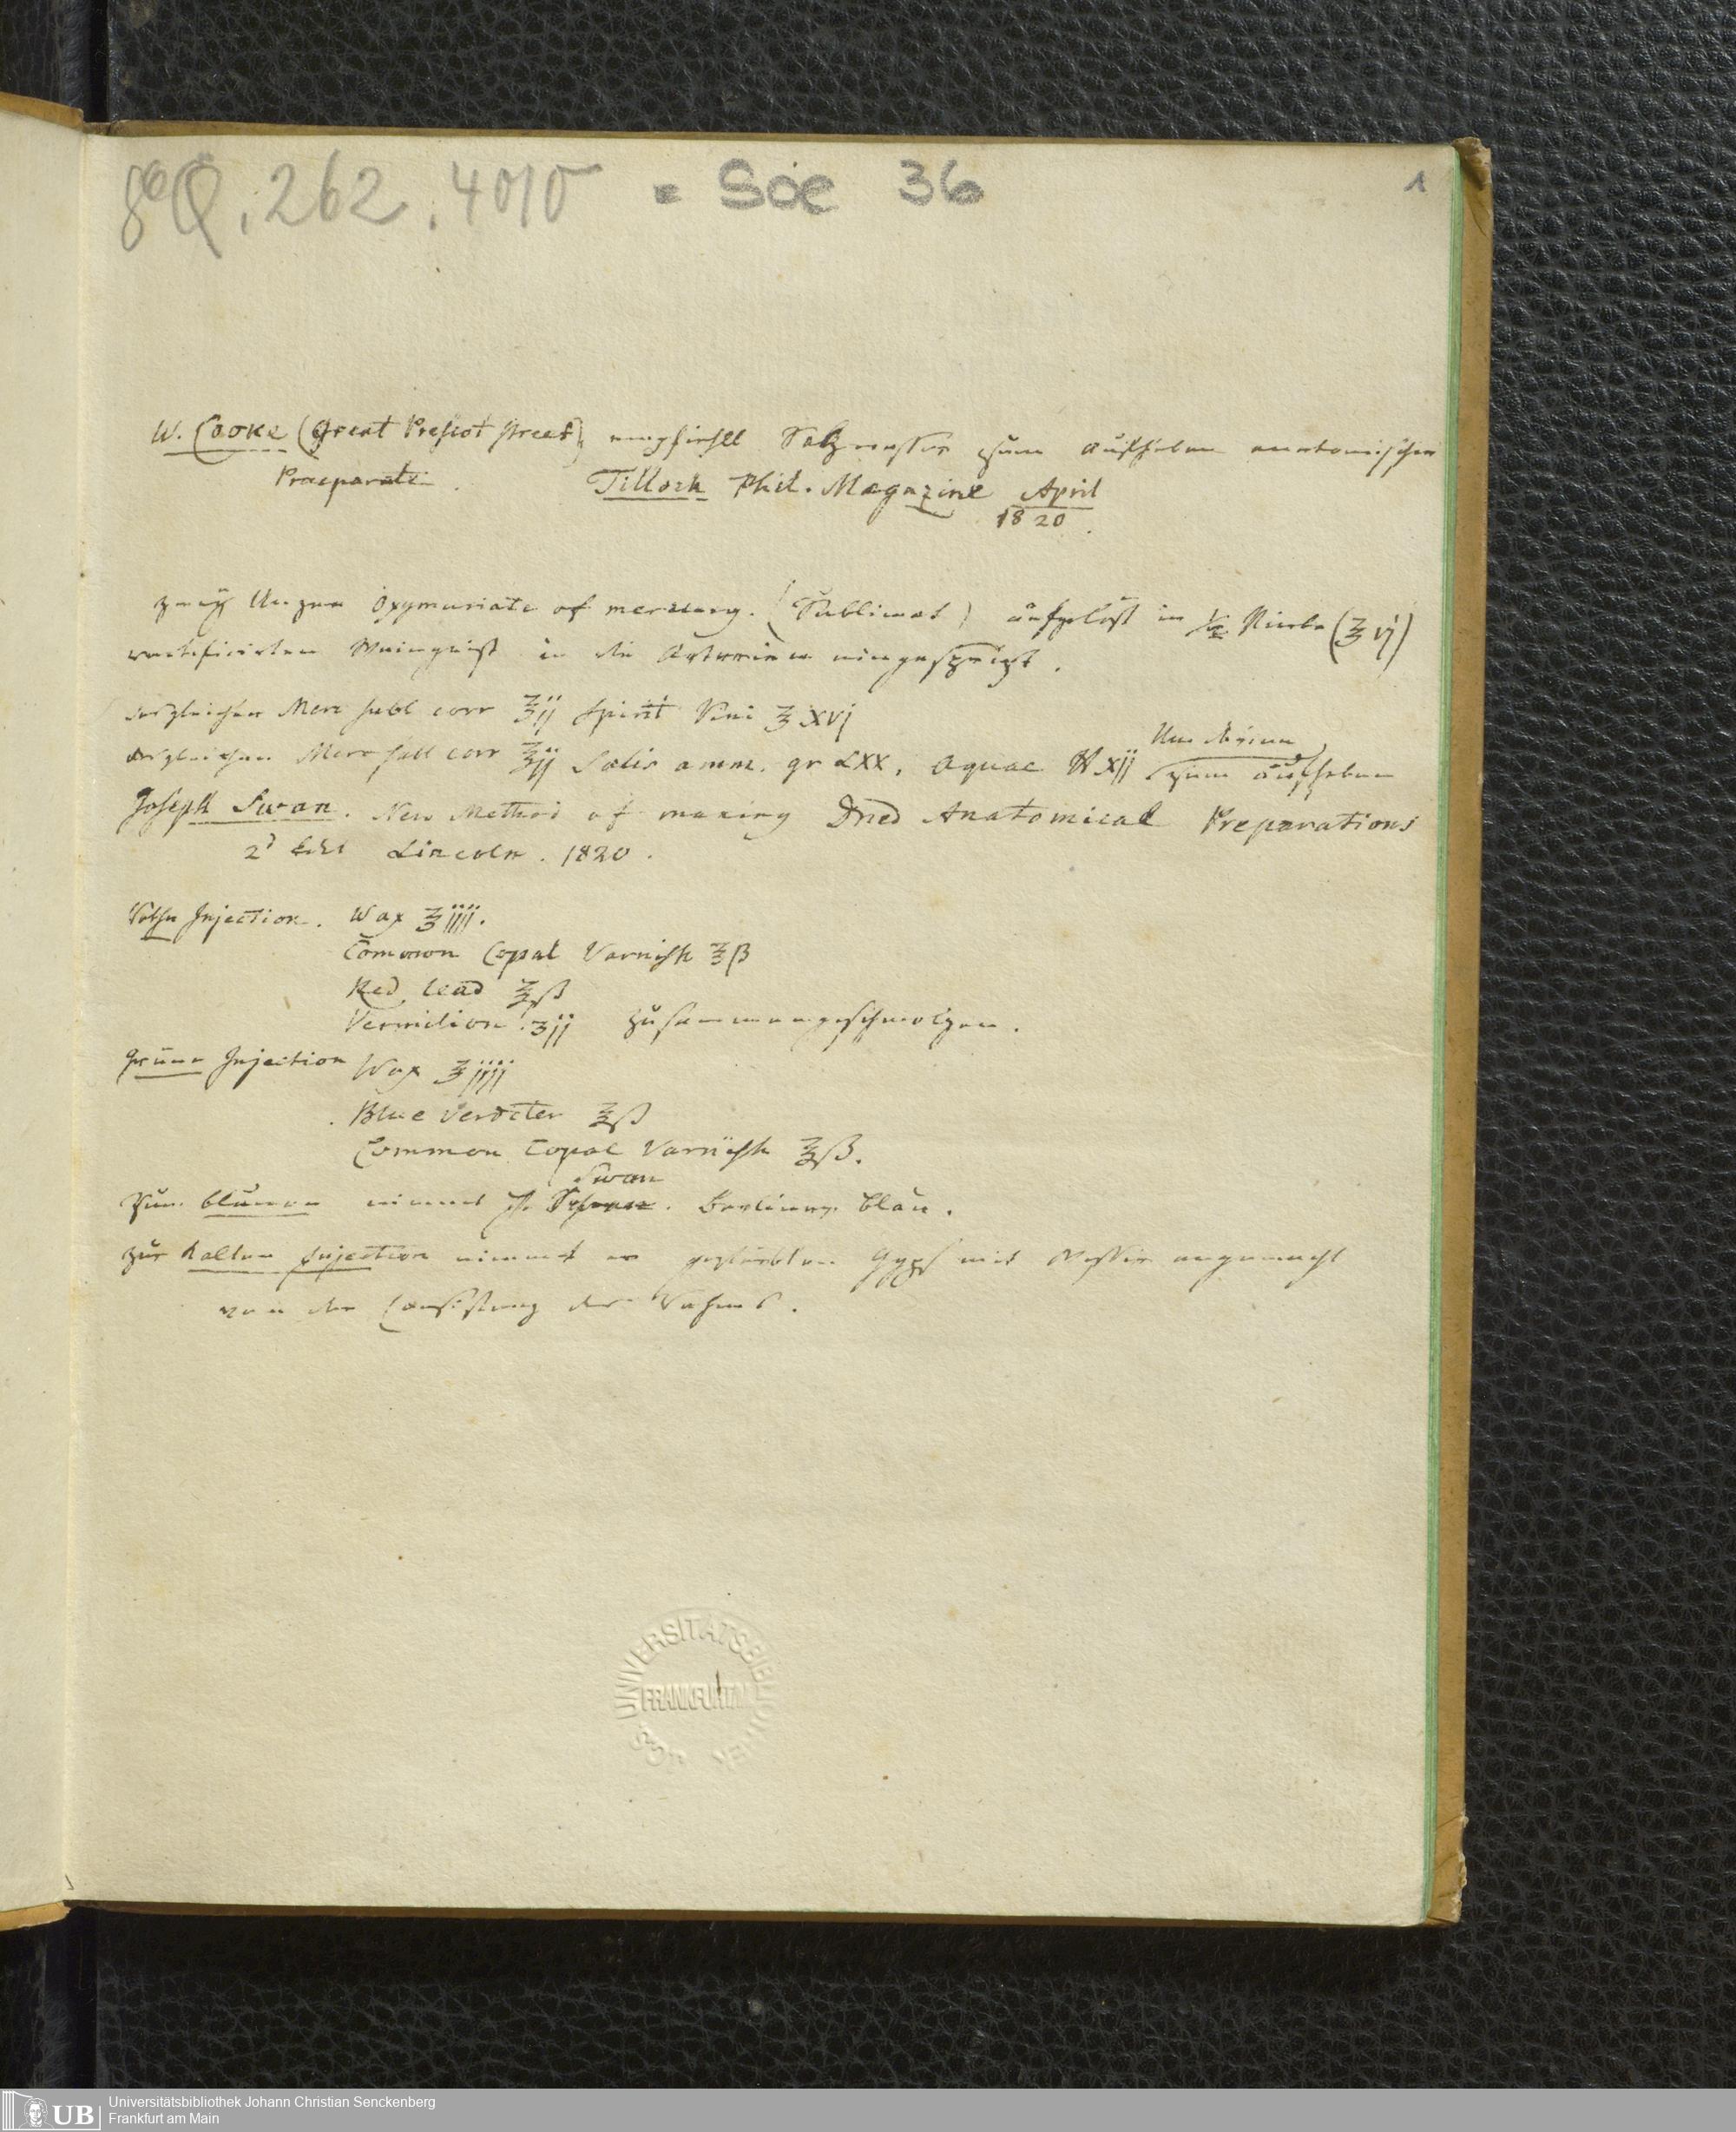 8° Q. 262. 4010 = Soe 36
1
W. Cooke (Great Prescot Street) empfiehlt Salzwasser zum aufheben anatomischer
Praeparate. Tilloch Phil. Magazine April
1820.
zwey Unzen Oxymuriate of mercury. (Sublimat) aufgelöst in ½ Pinte (℥ vj)
rectificirten Weingeist in die Arterien eingespritzt.
desgleichen Merc subl corr ℥ij Spirit Vini ℥ xvj
desgleichen Merc subl corr ℥ij Salis amm. gr LXX, Aquae ℔ xij zum aufheben
Joseph Swan. New Method of making Dried Anatomical Preparations
2d Edit Lincoln. 1820.
Rothe Injection. Wax ℥iiij.
Common Copal Varnish ℥ß
Red lead ℥ß
Vermilion. ʒij zusammengeschmolzen.
Grüne Injection Wax ℥iiij
Blue Verditer ℥ß
Common Copal Varnish ℥ß.
Swan
Zur blauen nimmt Berliner blau.
zur kalten Injection nimmt er Gyps mit Wasser angemacht
von der Consistenz des Rahms.
UNIVERSITÄTSBIBLIOTHEK
FRANKFURT/M
UB
Universitätsbibliothek Johann Christian Senckenberg
Frankfurt am Main